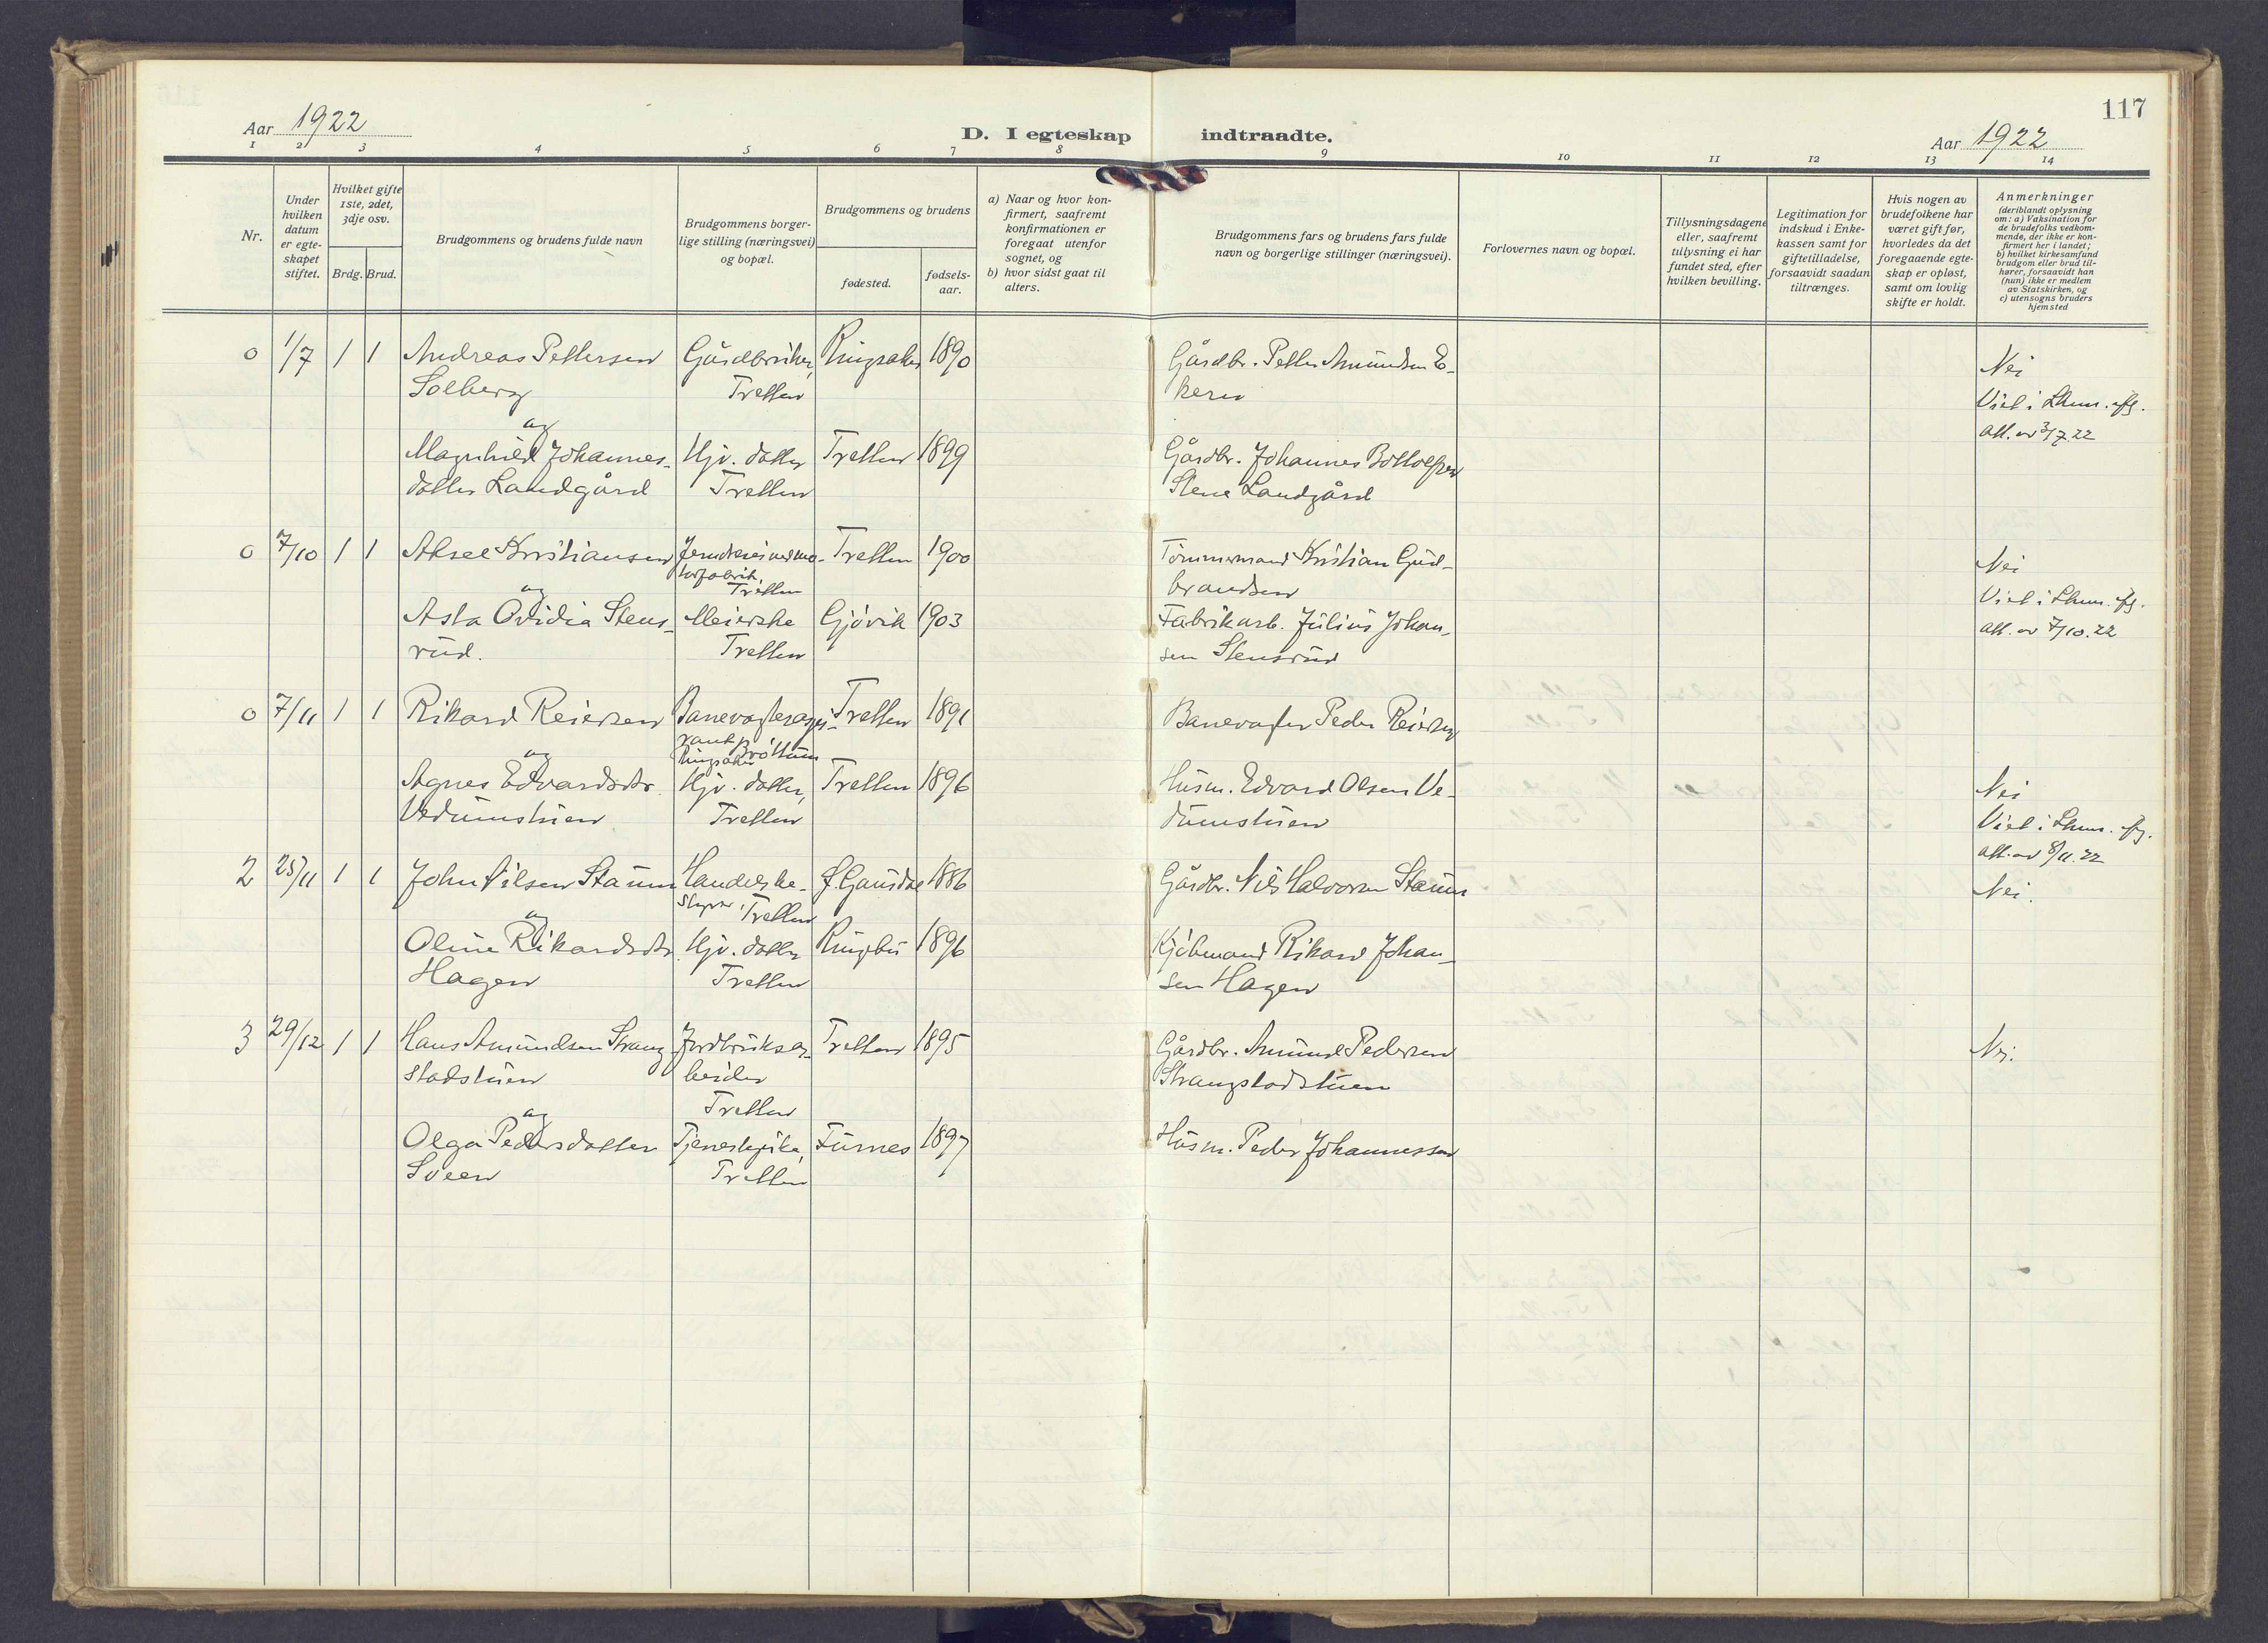 117
Aar 1922
D. I egteskap indtraadte.
Aar 1922
1 2 3 4 5 6 7 8 9 10 11 12 13 14
Nr.
Under
hvilken
datum
er egte-
skapet
stiftet.
Hvilket gifte
1ste, 2det,
3dje osv.
Brdg. Brud.
Brudgommens og brudens fulde navn
Brudgommens borger-
lige stilling (næringsvei)
og bopæl.
Brudgommens og brudens
fødested.
fødsels-
aar.
a) Naar og hvor kon-
firmert, saafremt
konfirmationen er
foregaat utenfor
sognet, og
b) hvor sidst gaat til
alters.
Brudgommens fars og brudens fars fulde
navn og borgerlige stillinger (næringsvei).
Forlovernes navn og bopæl.
Tillysningsdagene
eller, saafremt
tillysning ei har
fundet sted, efter
hvilken bevilling.
Legitimation for
indskud i Enke-
kassen samt for
giftetilladelse,
forsaavidt saadan
tiltrænges.
Hvis nogen av
brudefolkene har
været gift før,
hvorledes da det
foregaaende egte-
skap er opløst,
samt om lovlig
skifte er holdt.
Anmerkninger
(deriblandt oplysning
om: a) Vaksination for
de brudefolks vedkom-
mende, der ikke er kon-
firmert her i landet;
b) hvilket kirkesamfund
brudgom eller brud til-
hører, forsaavidt han
(hun) ikke er medlem
av Statskirken, og
c) utensogns bruders
hjemsted
0 1/7 1 1 Andreas Pettersen Gårdbruker, Ringsaker 1890 Gårdbr. Petter Amundsen E- Nei
Solberg Tretten kern Viet i Lhmr.
og att. av 3/7 22
Magnhild Johannes- Hjv. datter Tretten 1899 Gårdbr. Johannes Bottolfsen
datter Landgård Tretten Stene Landgård
0 7/10 1 1 Aksel Kristiansen Tretten 1900 Tömmermand Kristian Gud- Nei
og Tretten brandsen Viet i Lhmr.
Asta Ovidia Stens- Meierske Gjövik 1903 Fabrikarb. Julius Johan- att. av 7/10.22
rud. Tretten sen Stensrud
0 7/11 1 1 Rikard Reiersen Banevogteraspi- Tretten 1891 Banevogter Peder Reiersen
rant Bröttum
og Ringsaker
Agnes Edvardsdtr. Hjv. datter, Tretten 1896 Husm. Edvard Olsen Ve- Nei
Vedumstuen Tretten dumstuen Viet i Lhmr.
att. av 8/11.22
2 25/11 1 1 John Nilsen Staum Handelsbe- Gausdal 1886 Gårdbr. Nils Halvorsen Staum Nei.
styrer, Tretten
og
Oline Rikardsdtr. Hjv. datter Ringebu 1896 Kjöbmand Rikard Johan-
Hagen Tretten sen Hagen
3 29/12 1 1 Hans Amundsen Strang- Jordbruksar- Tretten 1895 Gårdbr. Amund Pedersen Nei.
stadstuen beider Strangstadstuen
og Tretten
Olga Pedersdatter Tjenestepike, Furnes 1897 Husm. Peder Johannessen
Sveen Tretten